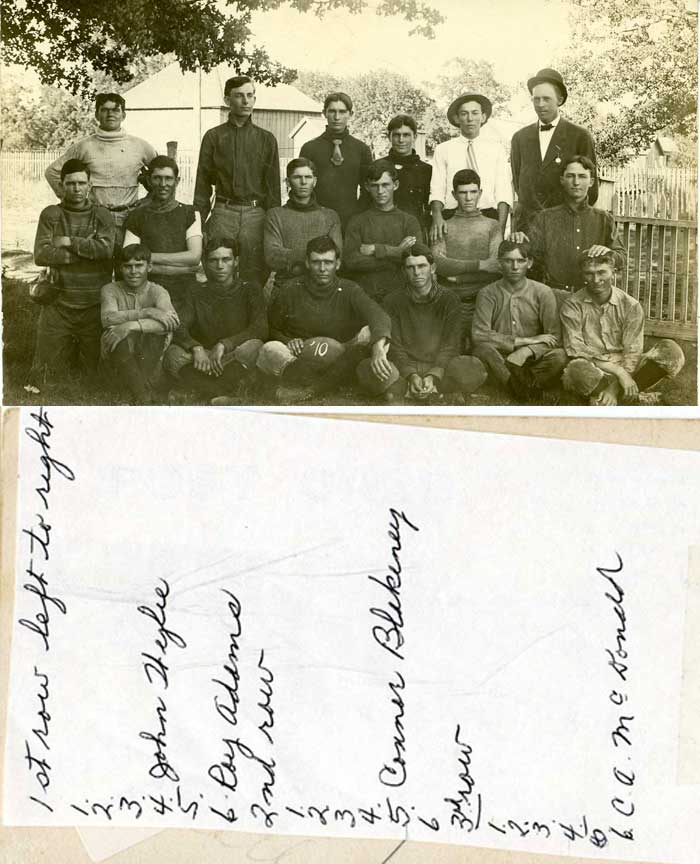 '10
1st row left to right
1.
2.
3.
4. John Wylie
5.
6. Roy Adams
2nd row
1.
2
3
4.
5. Conner Blakeney
6
3rd row
1.
2.
3.
4
5
6. C. A. McDonald